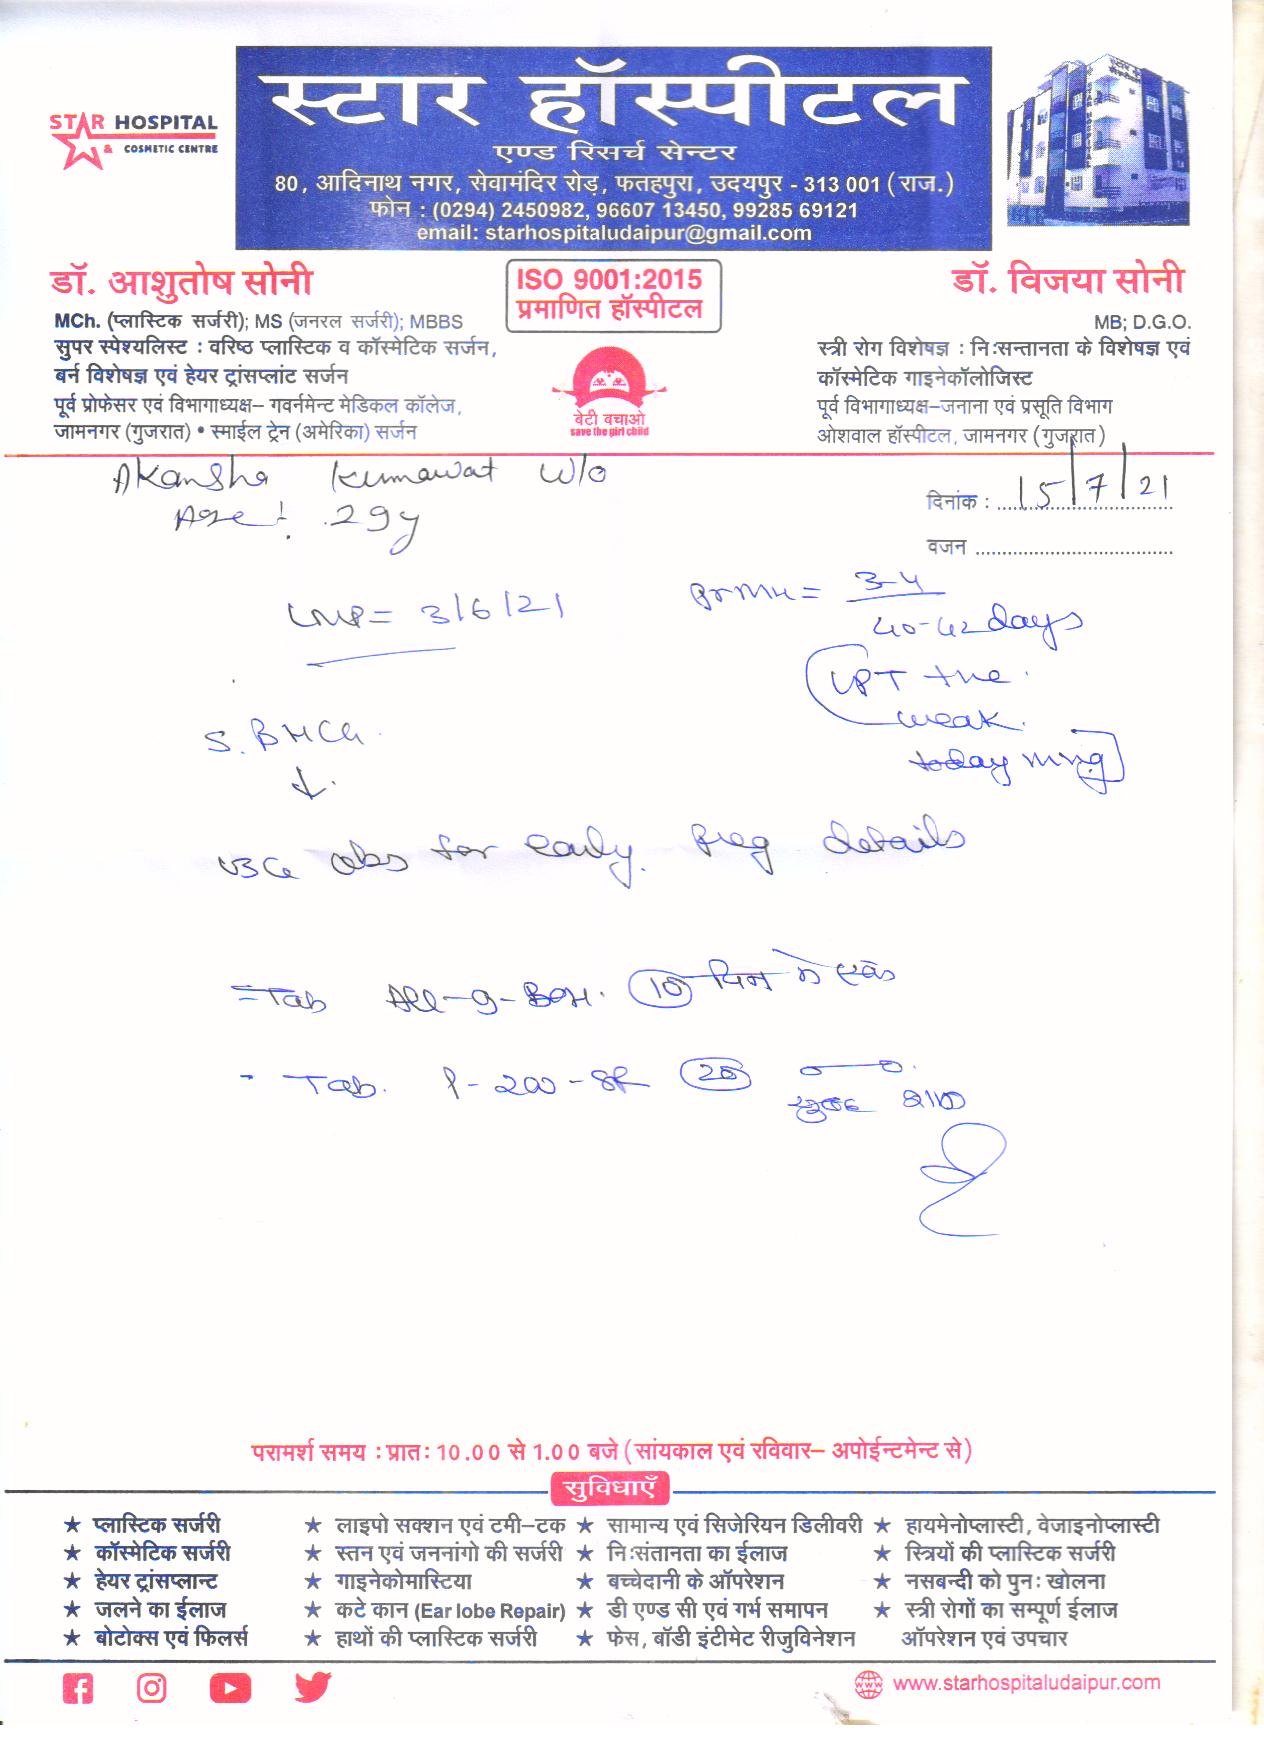 स्टार हॉस्पीटल
STAR HOSPITAL
& COSMETIC CENTRE
एण्ड रिसर्च सेन्टर
80, आदिनाथ नगर, सेवामंदिर रोड़, फतहपुरा, उदयपुर - 313 001 (राज.)
फोन : (0294) 2450982, 96607 13450, 99285 69121
email: starhospitaludaipur@gmail.com
डॉ. आशुतोष सोनी
MCh. (प्लास्टिक सर्जरी); MS (जनरल सर्जरी); MBBS
सुपर स्पेश्यलिस्ट : वरिष्ठ प्लास्टिक व कॉस्मेटिक सर्जन,
बर्न विशेषज्ञ एवं हेयर ट्रांसप्लांट सर्जन
पूर्व प्रोफेसर एवं विभागाध्यक्ष– गवर्नमेन्ट मेडिकल कॉलेज,
जामनगर (गुजरात) • स्माईल ट्रेन (अमेरिका) सर्जन
ISO 9001:2015
प्रमाणित हॉस्पीटल
बेटी बचाओ
save the girl child
डॉ. विजया सोनी
MB; D.G.O.
स्त्री रोग विशेषज्ञ : निःसन्तानता के विशेषज्ञ एवं
कॉस्मेटिक गाइनेकॉलोजिस्ट
पूर्व विभागाध्यक्ष–जनाना एवं प्रसूति विभाग
ओशवाल हॉस्पीटल, जामनगर (गुजरात)
Akansha Kumawat W/o
Age :- 29y
दिनांक : 15/7/21
वजन
LMP = 3/6/21
PrMH = 3-4
40-42 days
UPT +ve
weak
today mng
S. BHCG
↓
USG obs for early Preg details
= Tab All-9-BON. 10 दिन में एक
- Tab. P-200-SR 20
सुबह शाम
परामर्श समय : प्रातः 10.00 से 1.00 बजे (सांयकाल एवं रविवार– अपोईन्टमेन्ट से)
सुविधाएँ
★ प्लास्टिक सर्जरी ★ लाइपो सक्शन एवं टमी–टक ★ सामान्य एवं सिजेरियन डिलीवरी ★ हायमेनोप्लास्टी, वेजाइनोप्लास्टी
★ कॉस्मेटिक सर्जरी ★ स्तन एवं जननांगो की सर्जरी ★ निःसंतानता का ईलाज ★ स्त्रियों की प्लास्टिक सर्जरी
★ हेयर ट्रांसप्लान्ट ★ गाइनेकोमास्टिया ★ बच्चेदानी के ऑपरेशन ★ नसबन्दी को पुनः खोलना
★ जलने का ईलाज ★ कटे कान (Ear lobe Repair) ★ डी एण्ड सी एवं गर्भ समापन ★ स्त्री रोगों का सम्पूर्ण ईलाज
★ बोटोक्स एवं फिलर्स ★ हाथों की प्लास्टिक सर्जरी ★ फेस, बॉडी इंटीमेट रीजुविनेशन ऑपरेशन एवं उपचार
www.starhospitaludaipur.com